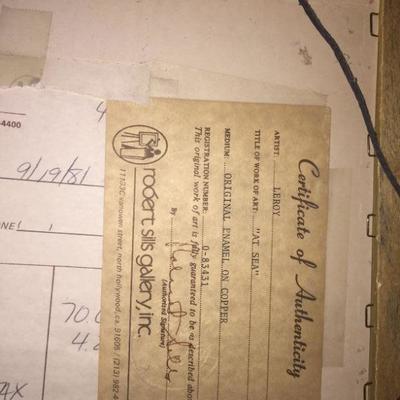 Certificate of Authenticity
ARTIST: LEROY
TITLE OF WORK OF ART: "AT SEA"
MEDIUM: ORIGINAL ENAMEL ON COPPER
REGISTRATION NUMBER: O-83431
This original work of art is fully guaranteed to be as described above
By
(Authorized Signature)
robert sills gallery, inc.
vanowen street, north hollywood, ca. 91605 / (213) 982-
-4400
9/19/81